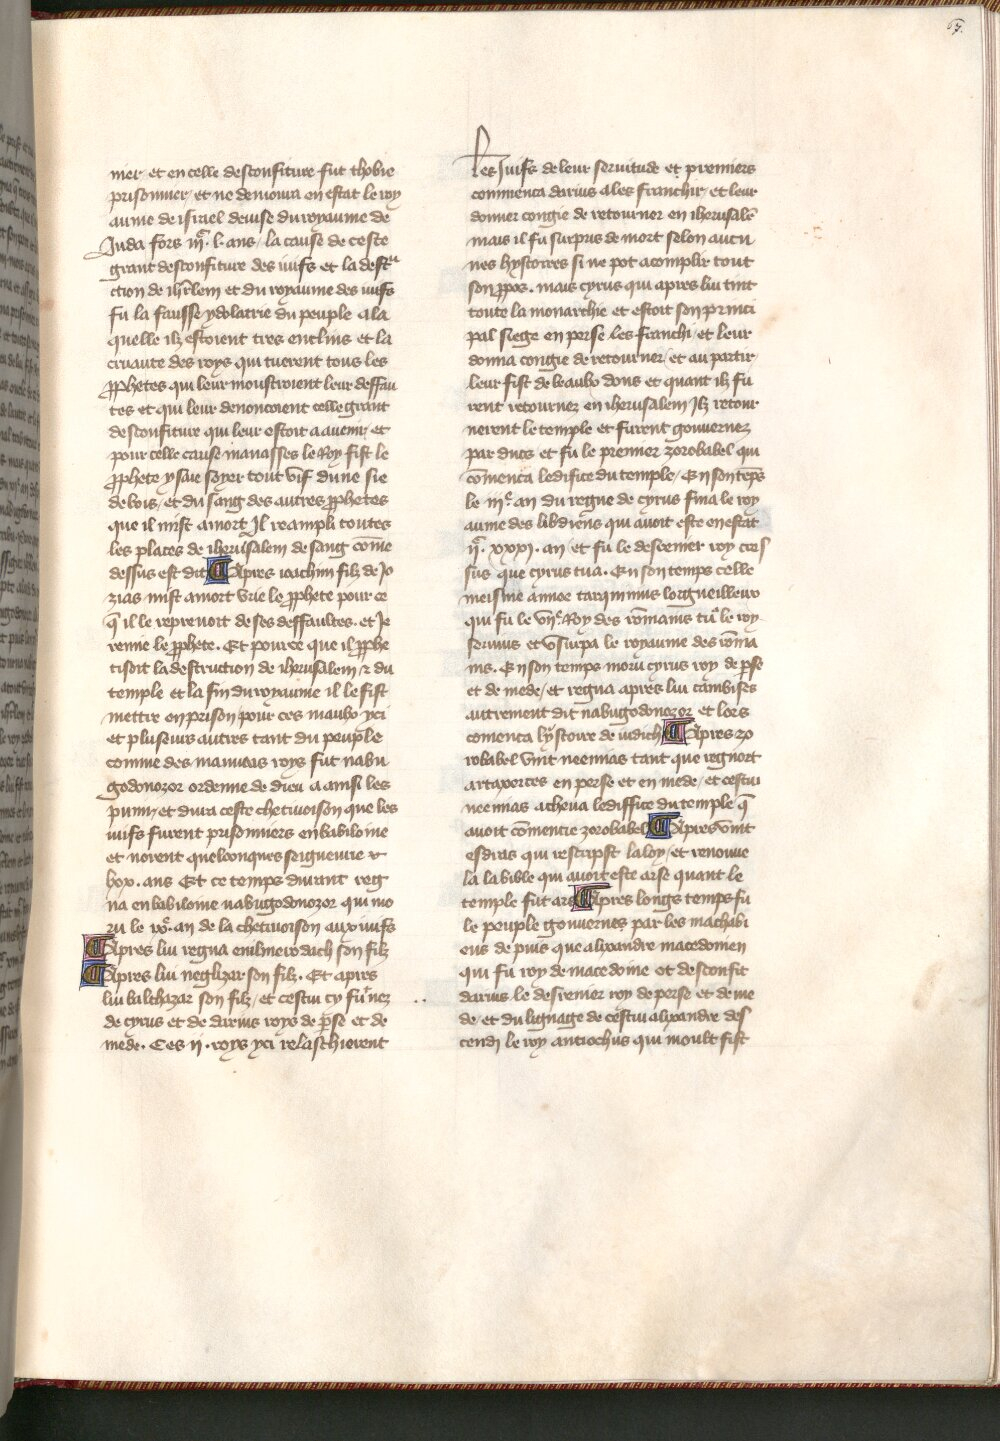 67.
mer, et en celle desconfiture fut thobie
prisonnier, et ne demoura en estat le roy
aume de israel deuise du royaume de
Juda fors iiᶜ. l. ans, la cause de ceste
grant desconfiture des iuifs et la destru
ction de ihrlem et du royaume des iuifs
fu la fausse ydolatrie du peuple a la
quelle ilz estoient tres enclins et la
cruaute des roys qui tuerent tous les
pphetes qui leur monstroient leur deffau
tes et qui leur denoncoient celle grant
desconfiture qui leur estoit a auenir, et
pour celle cause manasses le Roy fist le
pphete ysaie soyer tout vif dune sie
de bois, et du sang des autres pphetes
que il mist a mort Il reampli toutes
les places de iherusalem de sang cōme
dessus est dit ¶ Apres ioachim filz de Jo
zias mist a mort vrie le pphete pour ce
q̄ il le reprenoit de ses deffaultes. et Je
remie le pphete. Et pource que il pphe
tisoit la destruction de iherusalem ⁊ du
temple et la fin du royaume il le fist
mettre en prison, pour ces maulx yci
et plusieurs autres tant du peuple
comme des mauuais roys fut nabu
godonozor ordenne de dieu a ainsi les
punir, et dura ceste chetiuoison que les
iuifs furent prisonniers en babiloine
et norent quelconques seigneurie
lxx. ans Et ce temps durant reg
na en babiloine nabugodonozor qui mo
ru le an de la chetiuoison aux iuifs
¶ Apres lui regna euilmerodach son filz
¶ Apres lui neglizar son filz. Et apres
lui balthazar son filz, et cestui cy fu
de cyrus et de darius roys de perse et de
mede. Ces ii. roys yci relaschierent
Les Juifs de leur seruitude et premiers
commenca darius a les franchir, et leur
donner congie de retourner en iherusalē
mais il fu surpris de mort selon aucu
nes hystoires si ne pot acomplir tout
son ppos. mais cyrus qui apres lui tint
toute la monarchie et estoit son princi
pal siege en perse les franchi, et leur
donna congie de retourner, et au partir
leur fist de beaulx dons et quant ilz fu
rent retournez en iherusalem Ilz retour
nerent le temple et furent gouuernez
par ducs et fu le premier zorobabel qui
cōmenca ledifice du temple, En son temps
le iiiᵉ. an du regne de cyrus fina le roy
aume des libdiens qui auoit este en estat
iiᶜ. xxxi. an et fu le desrenier roy cres
sus que cyrus tua. En son temps celle
meisme annee tarquinius lorgueilleux
qui fu le viiᵉ. Roy des rōmains tua le roy
seruius et vsurpa le royaume des rōma
ins. En son temps moru cyrus roy de pse
et de mede, et regna apres lui cambises
autrement dit nabugodonozor et lors
comenca lystoire de iudich ¶ Apres zo
robabel vint neemias tant que regnoit
artaxerces en perse et en mede, et cestui
neemias acheua lediffice du temple q̄
auoit cōmencie zorobabel ¶ Apres vint
esdras qui rescripst la loy, et renouue
la la bible qui auoit este arse quant le
temple fut ars ¶ Apres longs temps fu
le peuple gouuernes par les machabi
eus de puis que alixandre macedonien
qui fu roy de macedoine et desconfit
darius le desrenier roy de perse et de me
de, et du lignage de cestui alixandre des
cendi le roy antiochus qui moult fist